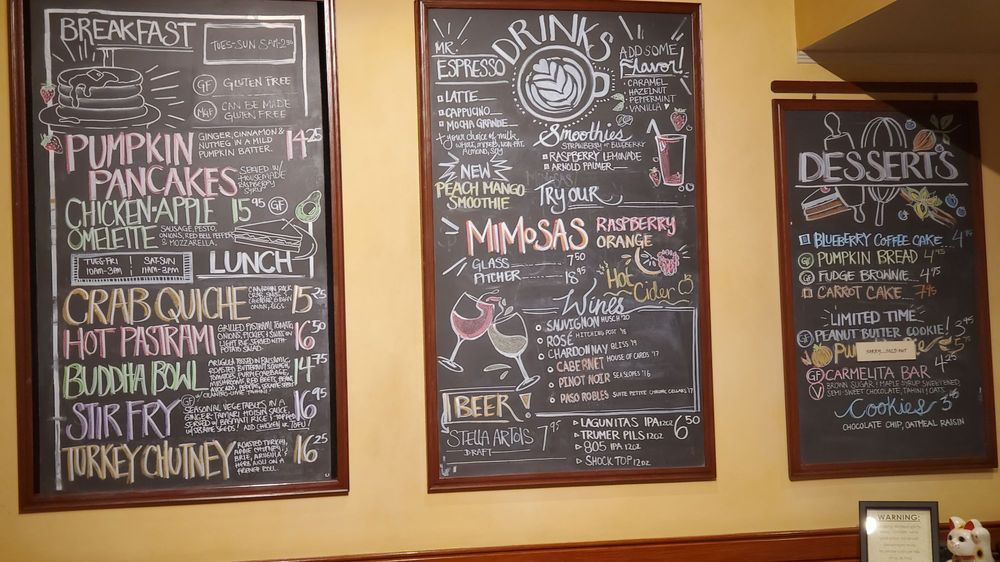 BREAKFAST
TUES-SUN 8AM-2:30
GF GLUTEN FREE
MGF CAN BE MADE
GLUTEN FREE
PUMPKIN
PANCAKES
GINGER, CINNAMON &
NUTMEG IN A MILD
PUMPKIN BATTER.
14 25
SERVED W/
HOUSEMADE
RASPBERRY
SYRUP
CHICKEN-APPLE 15 95 GF
OMELETTE
SAUSAGE, PESTO,
ONIONS, RED BELL PEPPER
& MOZZARELLA.
TUES-FRI | SAT-SUN
10AM-3PM | 11AM-3PM
LUNCH
CRAB QUICHE 15 25
HOT PASTRAMI 16 50
GRILLED PASTRAMI, TOMATO,
ONIONS, PICKLES & SWISS ON
LIGHT RYE. SERVED WITH
POTATO SALAD
BUDDHA BOWL 14 75
ARUGULA TOSSED IN BALSAMIC,
ROASTED BUTTERNUT SQUASH,
TOMATOES, PURPLE CABBAGE,
MUSHROOMS, RED BEETS,
STIR FRY GF 16 95
SEASONAL VEGETABLES IN A
GINGER-TAMARI HOISIN SAUCE,
SERVED W/ BASMATI RICE & TOPPED
W/ SESAME SEEDS! ADD CHICKEN OR TOFU!
TURKEY CHUTNEY 16 25
ROASTED TURKEY,
APPLE CHUTNEY,
BRIE, ARUGULA &
HERB AIOLI ON A
FRENCH ROLL.
DRINKS
MR.
ESPRESSO
LATTE
CAPPUCINO
MOCHA GRANDE
*your choice of milk
WHOLE, NONFAT,
ALMOND, SOY
ADD SOME
Flavor!
CARAMEL
HAZELNUT
PEPPERMINT
VANILLA
Smoothies
STRAWBERRY OR BLUEBERRY
RASPBERRY LEMONADE
ARNOLD PALMER
NEW
PEACH MANGO
SMOOTHIE
Try our
MIMOSAS RASPBERRY
ORANGE
GLASS 7 50
PITCHER 18 95
Hot
Cider
Wines
SAUVIGNON HUSCH '20
ROSÉ HITCHING POST '18
CHARDONNAY BLISS '19
CABERNET HOUSE OF CARDS '17
PINOT NOIR SEA SLOPES '16
PASO ROBLES SUITE PETITE CHRONIC CELLARS '17
BEER!
STELLA ARTOIS 7 95
DRAFT
LAGUNITAS IPA 12oz 6 50
TRUMER PILS 12oz
805 IPA 12oz
SHOCK TOP 12oz
DESSERTS
BLUEBERRY COFFEE CAKE
GF PUMPKIN BREAD 4 95
GF FUDGE BROWNIE 4 95
CARROT CAKE 7 95
LIMITED TIME
GF PEANUT BUTTER COOKIE! 3 95
SORRY...SOLD OUT
GF CARMELITA BAR 4 25
V BROWN SUGAR & MAPLE SYRUP SWEETENED
SEMI-SWEET CHOCOLATE, TAHINI & OATS
Cookies 3 95
CHOCOLATE CHIP, OATMEAL RAISIN
WARNING: